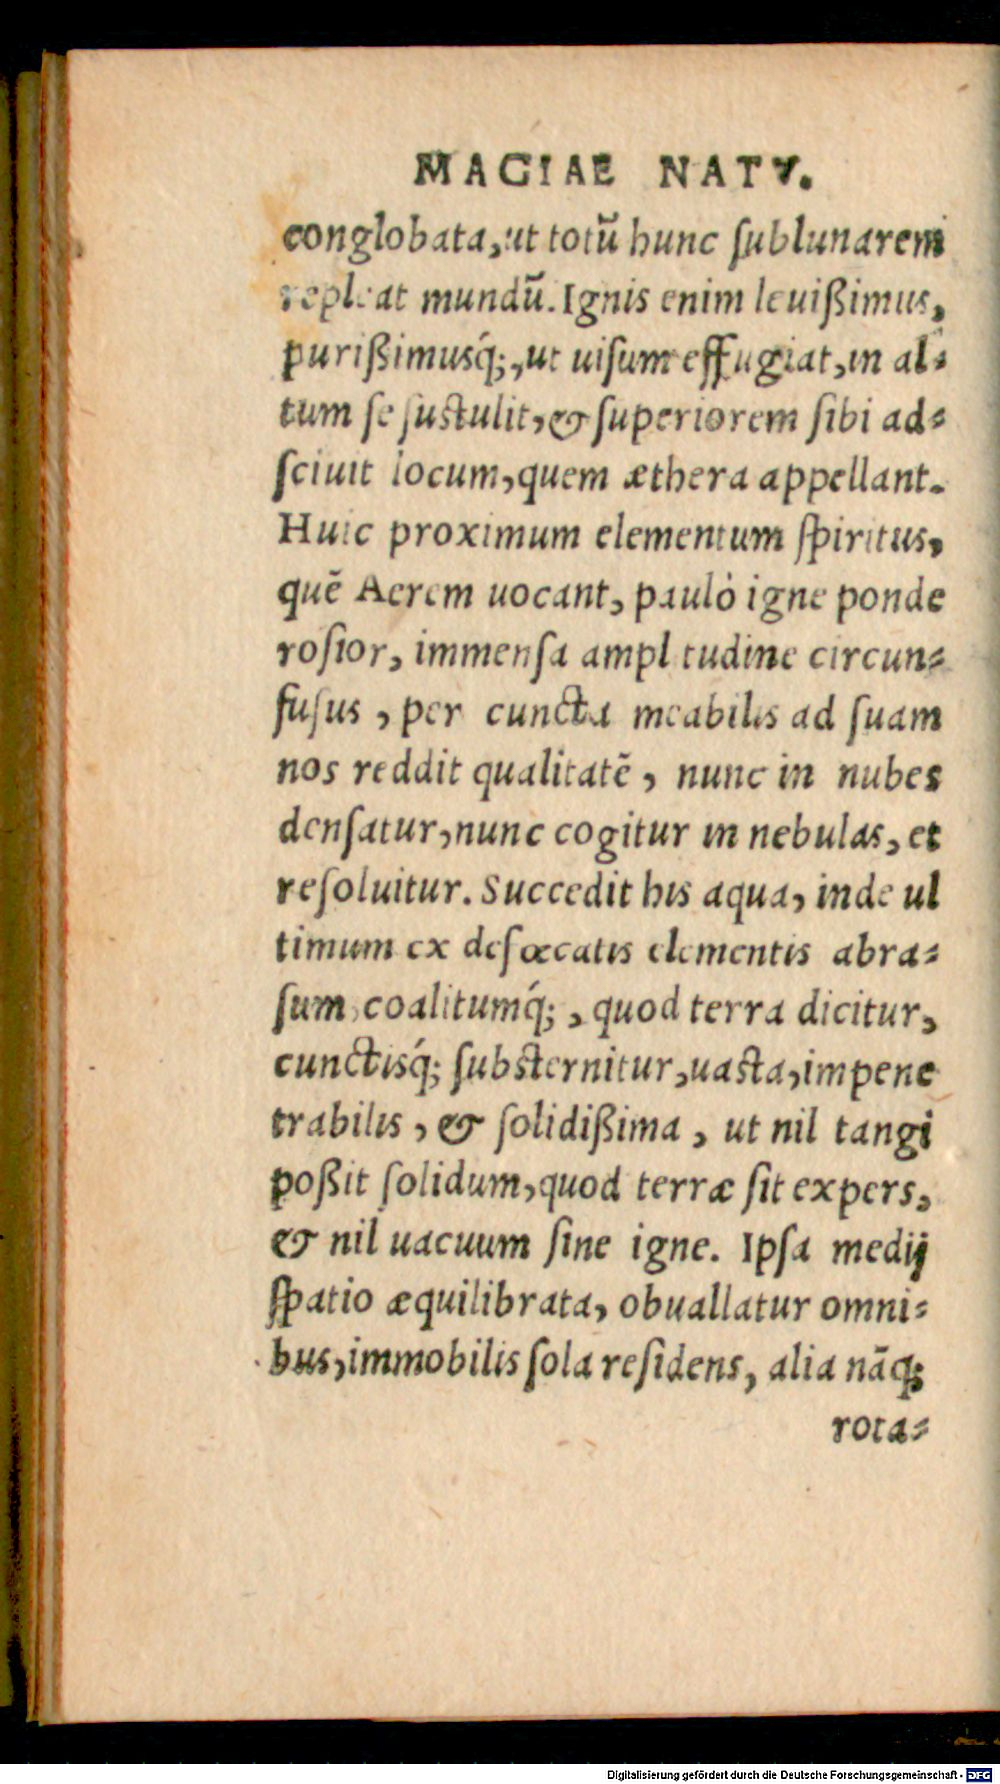 MAGIAE NATV.
conglobata, ut totũ hunc ſublunarem
repleat mundũ. Ignis enim leuißimus,
purißimusq́;, ut uiſum effugiat, in al-
tum ſe ſuſtulit, & ſuperiorem ſibi ad-
ſciuit locum, quem æthera appellant.
Huic proximum elementum ſpiritus,
quẽ Aerem uocant, paulò igne ponde
roſior, immenſa ampl tudine circun-
fuſus, per cuncta meabilis ad ſuam
nos reddit qualitatẽ, nunc in nubes
denſatur, nunc cogitur in nebulas, et
reſoluitur. Succedit his aqua, inde ul
timum ex defœcatis elementis abra-
ſum coalitumq́;, quod terra dicitur,
cunctisq́; ſubſternitur, uaſta, impene
trabilis, & ſolidißima, ut nil tangi
poßit ſolidum, quod terræ ſit expers,
& nil uacuum ſine igne. Ipſa medij
ſpatio æquilibrata, obuallatur omni-
bus, immobilis ſola reſidens, alia nãq;
rota-
Digitalisierung gefördert durch die Deutsche Forschungsgemeinschaft - DFG